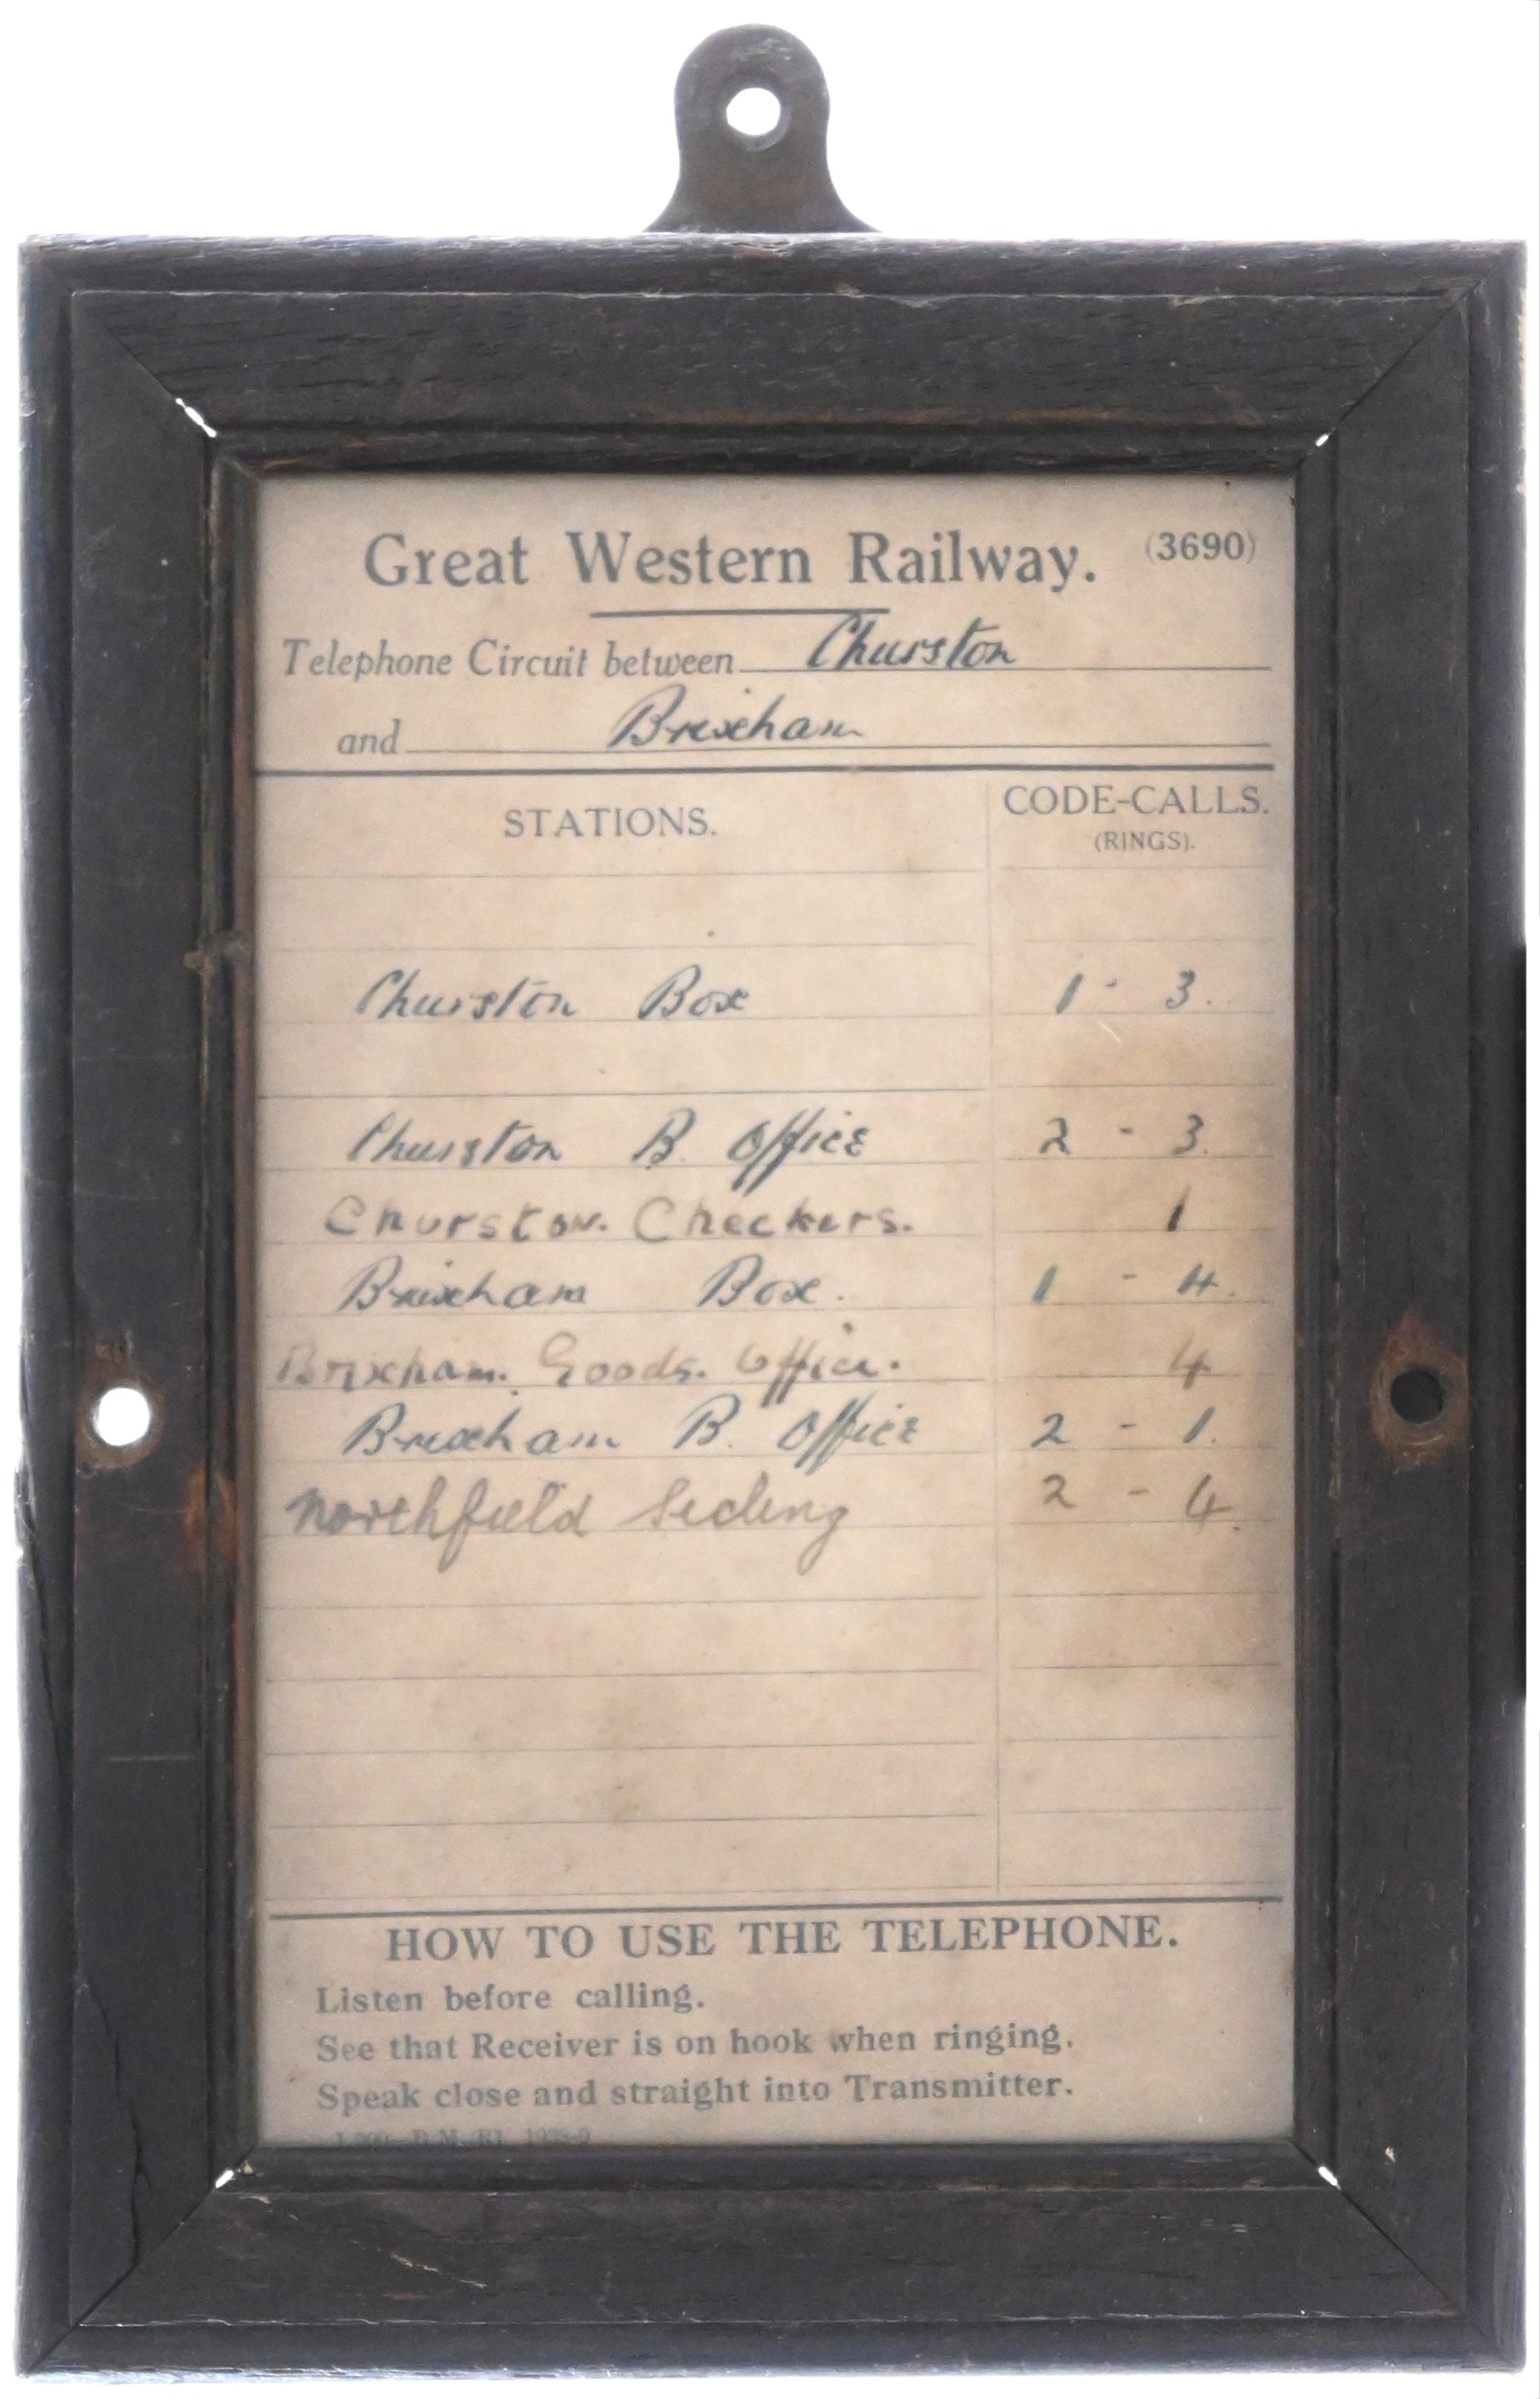 Great Western Railway. (3690)
Telephone Circuit between Churston
and Brixham
STATIONS. CODE-CALLS.
(RINGS).
Churston Box 1 - 3.
Churston B. Office 2 - 3.
Churston. Checkers. 1
Brixham Box. 1 - 4.
Brixham. Goods. Office. 4
Brixham B. Office 2 - 1.
Northfield Siding 2 - 4.
HOW TO USE THE TELEPHONE.
Listen before calling.
See that Receiver is on hook when ringing.
Speak close and straight into Transmitter.